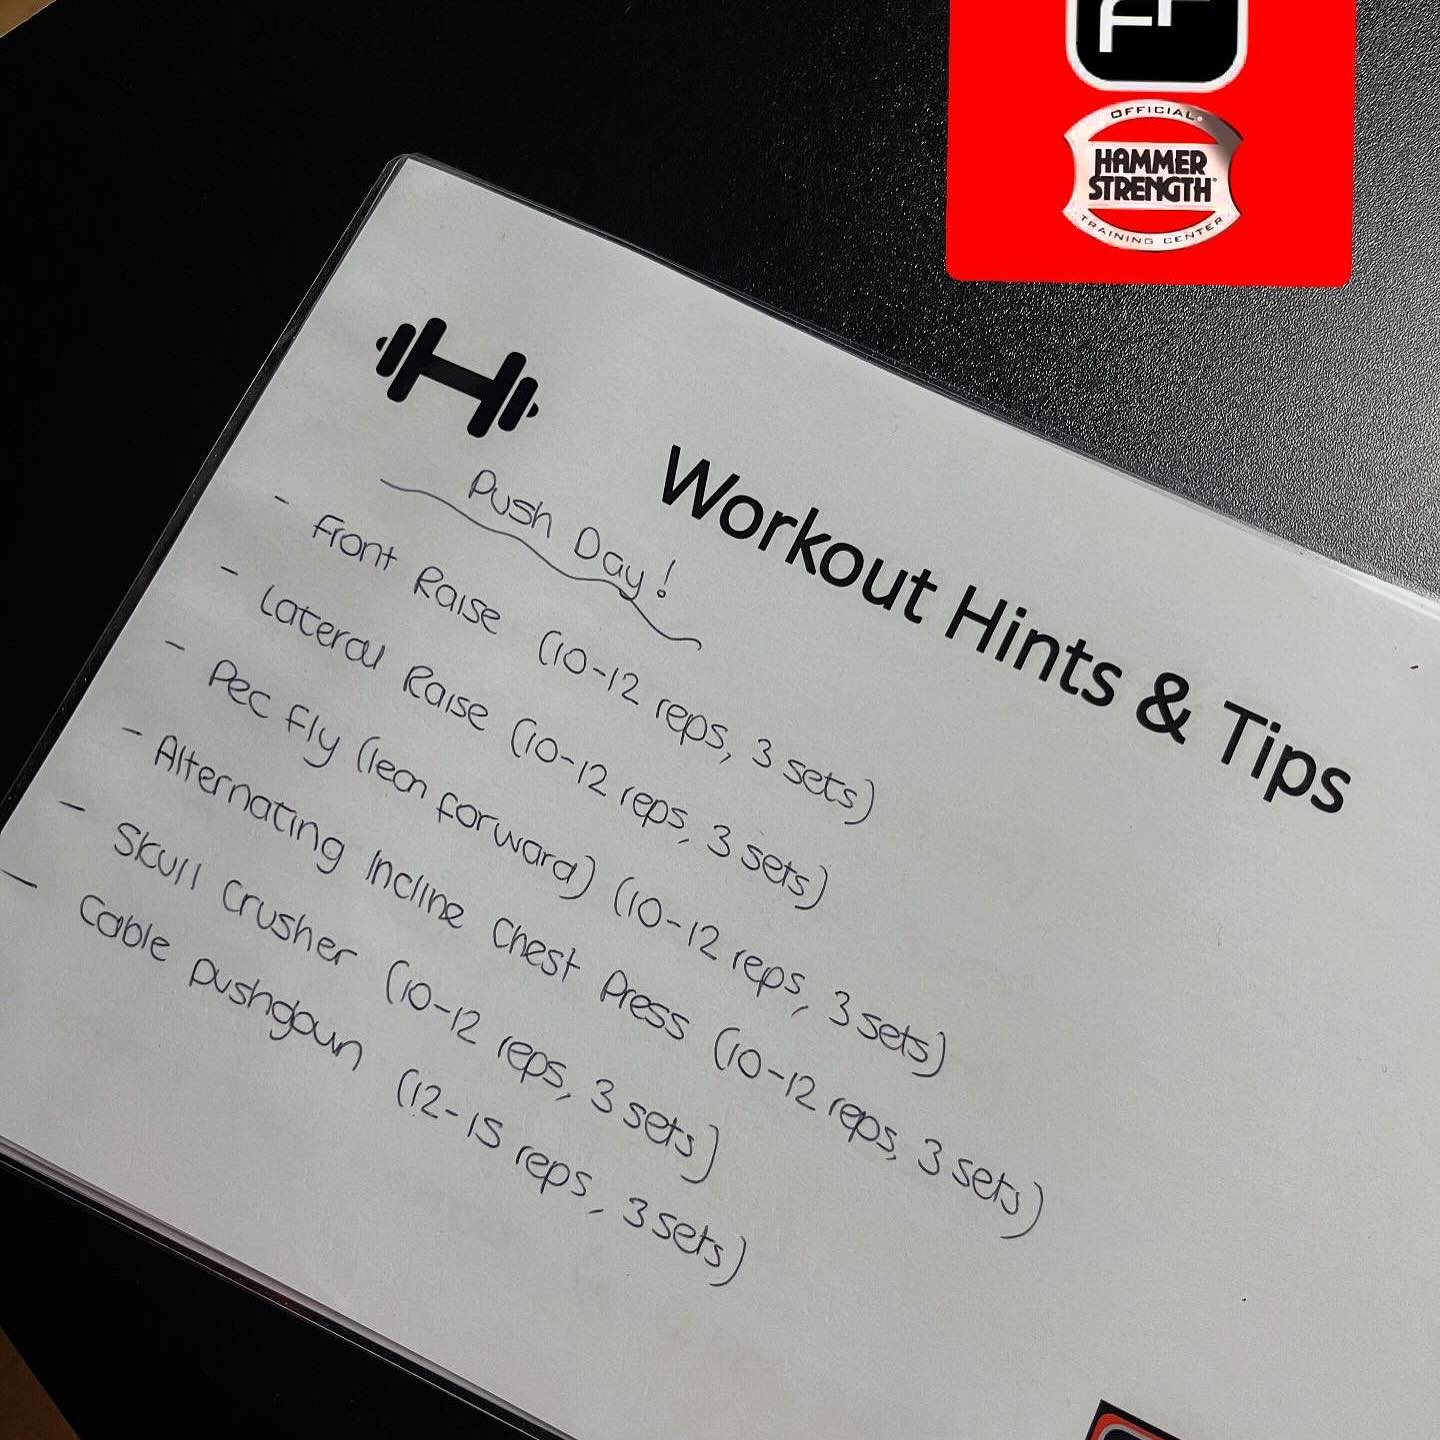 FF
OFFICIAL
HAMMER
STRENGTH
TRAINING CENTER
Workout Hints & Tips
Push Day!
- Front Raise (10-12 reps, 3 sets)
- Lateral Raise (10-12 reps, 3 sets)
- Pec Fly (lean forward) (10-12 reps, 3 sets)
- Alternating Incline Chest Press (10-12 reps, 3 sets)
- Skull Crusher (10-12 reps, 3 sets)
- Cable pushdown (12-15 reps, 3 sets)